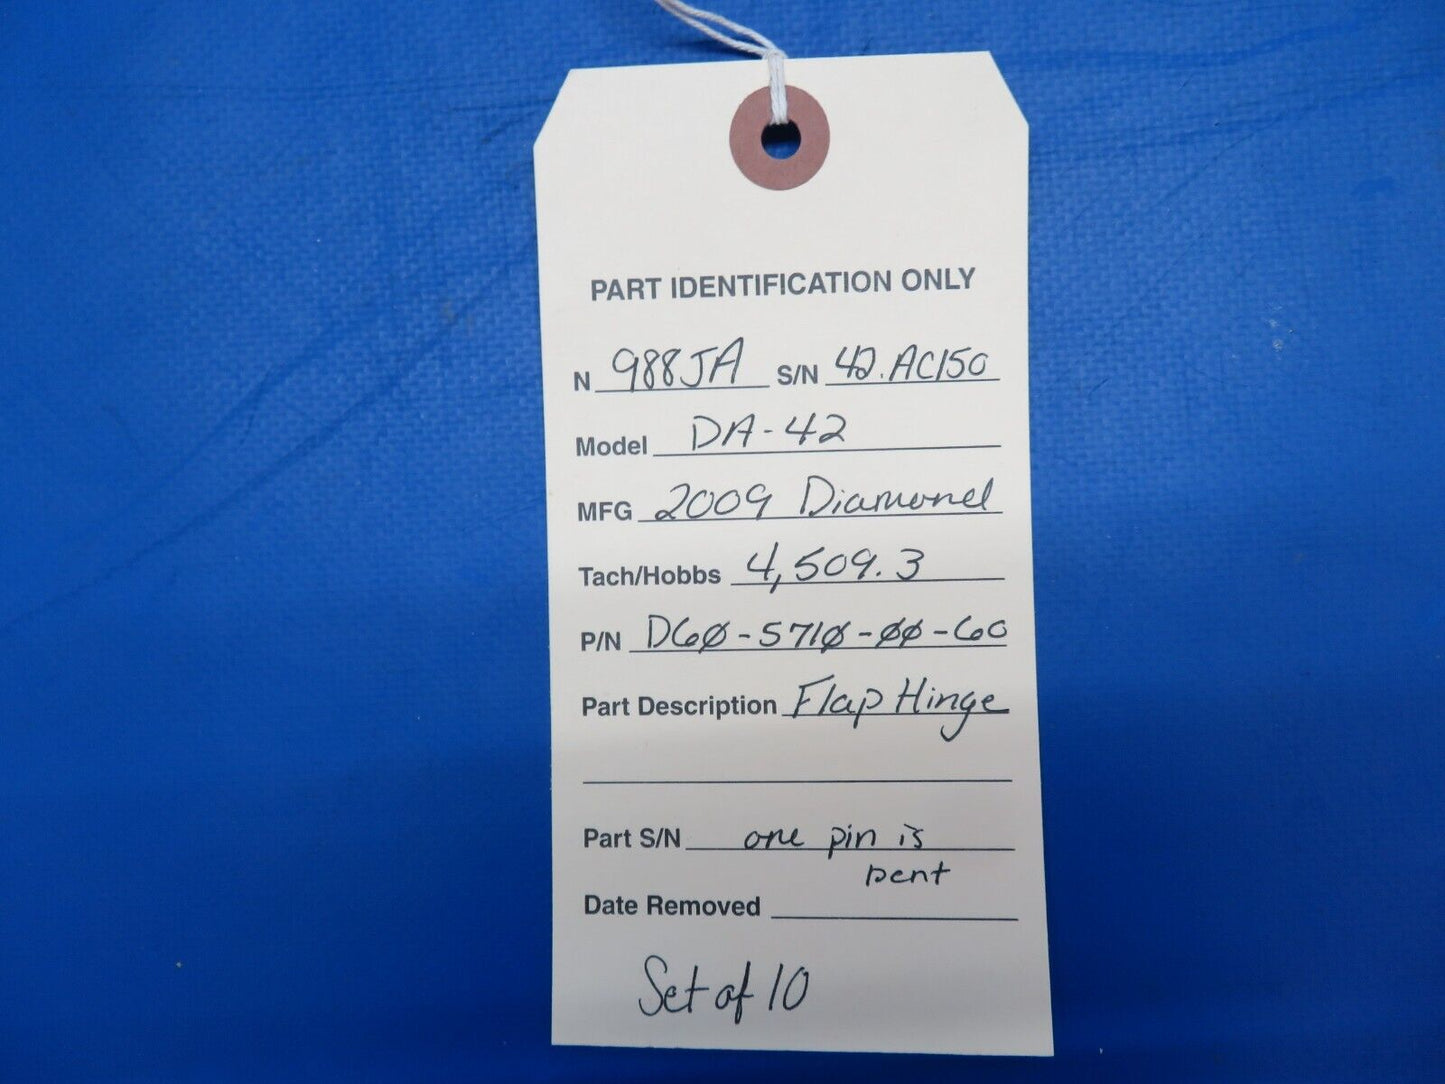 PART IDENTIFICATION ONLY
N 988JA S/N 42.AC150
Model DA-42
MFG 2009 Diamond
Tach/Hobbs 4,509.3
P/N D60-5710-00-60
Part Description Flap Hinge
Part S/N one pin is
bent
Date Removed
Set of 10